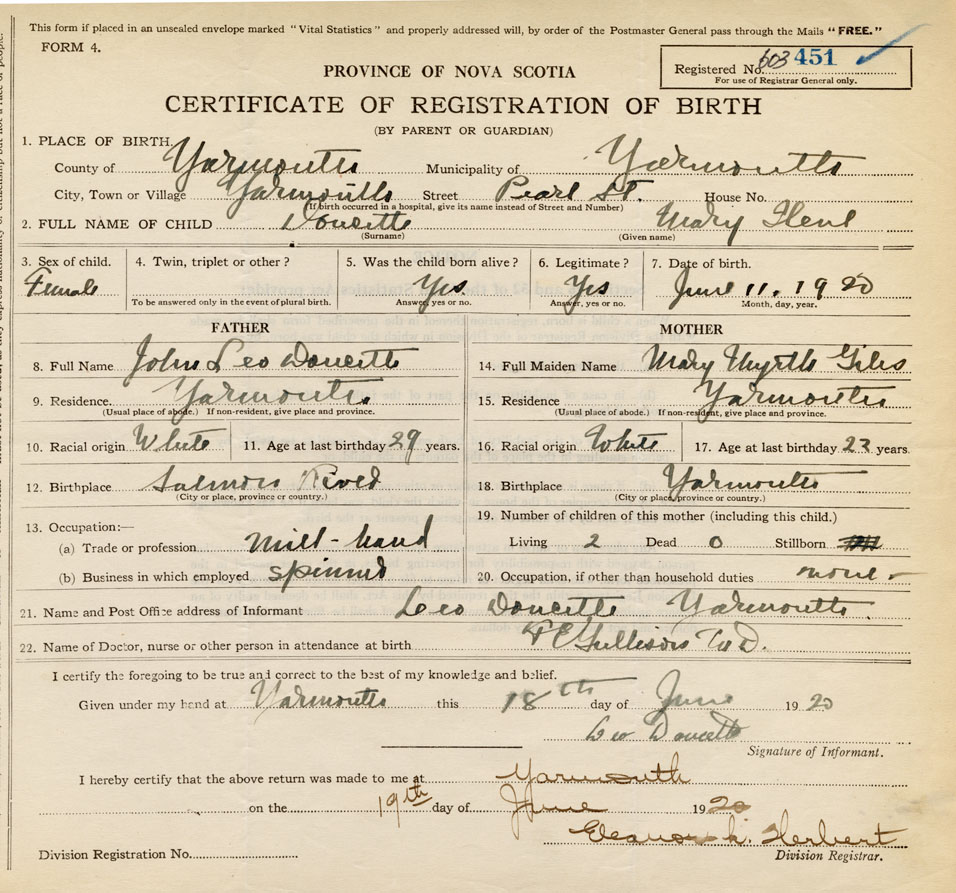 This form if placed in an unsealed envelope marked "Vital Statistics" and properly addressed will, by order of the Postmaster General pass through the Mails "FREE."
FORM 4.
Registered No. 603 451
For use of Registrar General only.
PROVINCE OF NOVA SCOTIA
CERTIFICATE OF REGISTRATION OF BIRTH
(BY PARENT OR GUARDIAN)
1. PLACE OF BIRTH
County of Yarmouth Municipality of Yarmouth
City, Town or Village Yarmouth Street Pearl St. House No.
(If birth occurred in a hospital, give its name instead of Street and Number)
2. FULL NAME OF CHILD Doucette Mary Ilene
(Surname) (Given name)
3. Sex of child. 4. Twin, triplet or other? 5. Was the child born alive? 6. Legitimate? 7. Date of birth.
Female Yes Yes June 11. 1920
To be answered only in the event of plural birth. Answer, yes or no. Answer, yes or no. Month, day, year.
FATHER
8. Full Name John Leo Doucette
9. Residence. Yarmouth
(Usual place of abode.) If non-resident, give place and province.
10. Racial origin White 11. Age at last birthday 29 years.
12. Birthplace Salmon River
(City or place, province or country.)
13. Occupation:—
(a) Trade or profession mill-hand
(b) Business in which employed spinner
MOTHER
14. Full Maiden Name Mary Myrtle Giles
15. Residence Yarmouth
(Usual place of abode.) If non-resident, give place and province.
16. Racial origin White 17. Age at last birthday 23 years.
18. Birthplace Yarmouth
(City or place, province or country.)
19. Number of children of this mother (including this child.)
Living 2 Dead 0 Stillborn
20. Occupation, if other than household duties none
21. Name and Post Office address of Informant Leo Doucette Yarmouth
22. Name of Doctor, nurse or other person in attendance at birth M.D.
I certify the foregoing to be true and correct to the best of my knowledge and belief.
Given under my hand at Yarmouth this 18th day of June 1920
Leo Doucette
Signature of Informant.
I hereby certify that the above return was made to me at Yarmouth
on the 19th day of June 1920
Eleanor L. Herbert
Division Registrar.
Division Registration No.